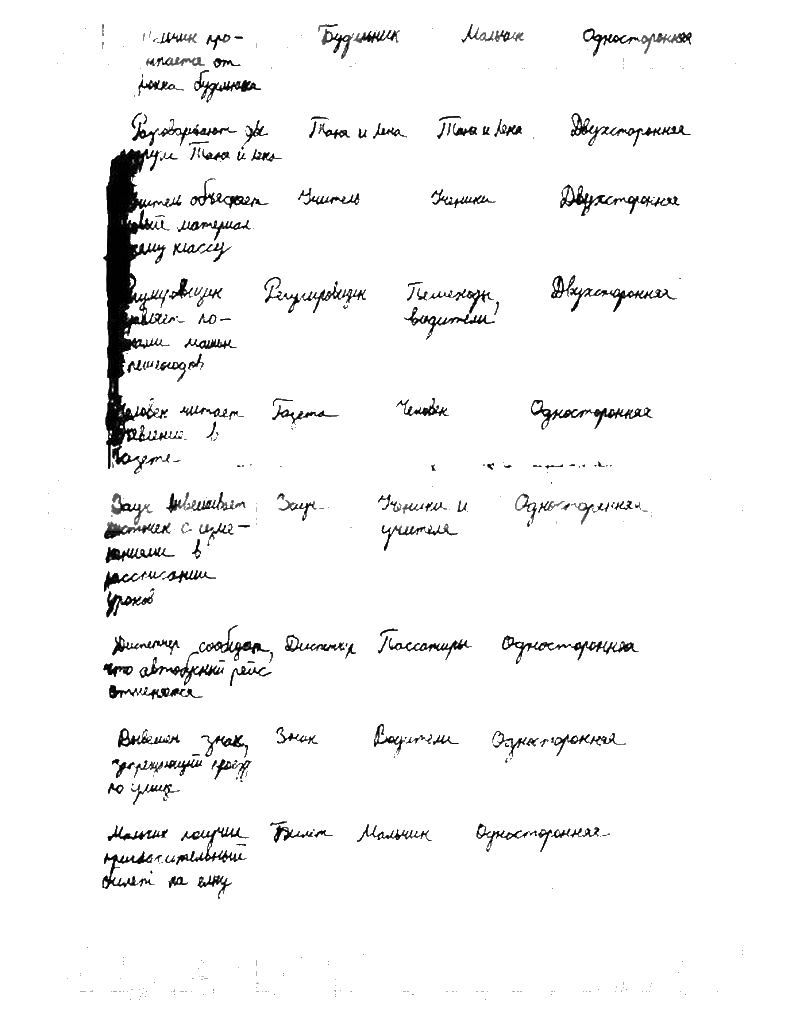 про- Будильник Мальчик Односторонняя
от
будильника
Разговаривают две Таня и Лена Таня и Лена Двухсторонняя
Таня и Лена
объясняет Учитель Ученики Двухсторонняя
материал
классу
Регулировщик Регулировщик Пешеходы, Двухсторонняя
по- водители
машин
пешеходов
Человек читает Газета Человек Односторонняя
в
газете
Завуч вывешивает Завуч Ученики и Односторонняя
листочек с изме- учителя
нениями в
рассписании
уроков
Диспетчер сообщает, Диспетчер Пассажиры Односторонняя
что автобусный рейс
отменяется
Вывешен знак, Знак Водители Односторонняя
запрещающий проезд
по улице
Мальчик получил Билет Мальчик Односторонняя
пригласительный
билет на елку